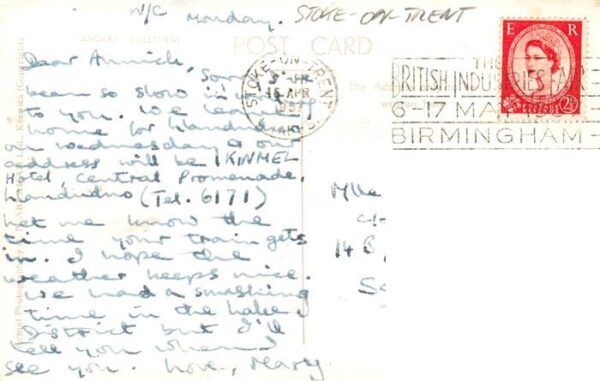 N/C Monday.
STOKE-ON-TRENT
POST CARD
Dear Annick, Sorry
been so slow in
to you. We leaving
home for Llandudno
on Wednesday & our
address will be KINMEL
Hotel, Central Promenade,
Llandudno (Tel. 6171)
Let me know the
time your train gets
in. I hope the
weather keeps nice.
We had a smashing
time in the Lake
District but I'll
tell you when I
see you. Love, Mary.
STOKE-ON-TRENT
15 APR
1957
THE
BRITISH INDUSTRIES FAIR
6-17 MAY 195
BIRMINGHAM
E R
POSTAGE REVENUE
2½D
The Address
Mlle
c/o
14 B,